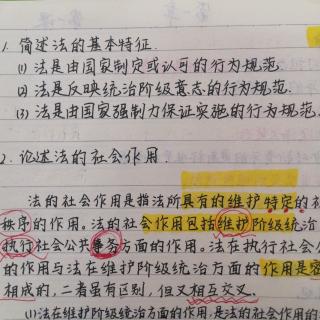 1. 简述法的基本特征.
(1) 法是由国家制定或认可的行为规范.
(2) 法是反映统治阶级意志的行为规范.
(3) 法是由国家强制力保证实施的行为规范.
2. 论述法的社会作用.
法的社会作用是指法所具有的维护特定的社
秩序的作用。法的社会作用包括维护阶级统治
执行社会公共事务方面的作用。法在执行社会公
的作用与法在维护阶级统治方面的作用是
相成的,二者虽有区别,但又相互交叉.
(1)法在维护阶级统治方面的作用,是法的社会作用的